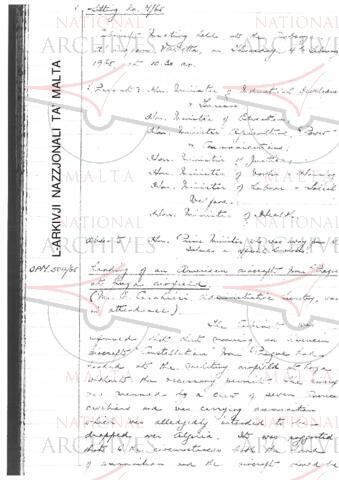 Sitting No. 4/65
Cabinet Meeting held at the Auberge
Valletta, on Thursday, 4th February
1965 at 10.30 a.m.
Present: Hon. Minister of Industrial Development
& Tourism
Hon. Minister of Education
Hon. Minister Agriculture, & Power
& Communications.
Hon. Minister of Justice
Hon. Minister of Works & Housing
Hon. Minister of Labour & Social
Welfare.
Hon. Minister of Health.
Absent: Hon. Prime Minister who was away from
OPM. 504/65 Landing of an American aircraft from Prague
at Luqa airfield
(Mr. E. Administrative Secretary, was
in attendance).
The Cabinet was
informed that that morning an American
aircraft Constellation from Prague had
landed at the military airfield at Luqa
without the necessary permit. The aircraft
was manned by a crew of seven American
civilians and was carrying ammunition
which was allegedly intended to be
dropped over Algeria. It was reported
that in the circumstances both the
of ammunition and the aircraft could be
L-ARKIVJI NAZZJONALI TA' MALTA
NATIONAL
ARCHIVES
MALTA
NATIONAL
ARCHIVES
MALTA
NATIONAL
ARCHIVES
MALTA
NATIONAL
ARCHIVES